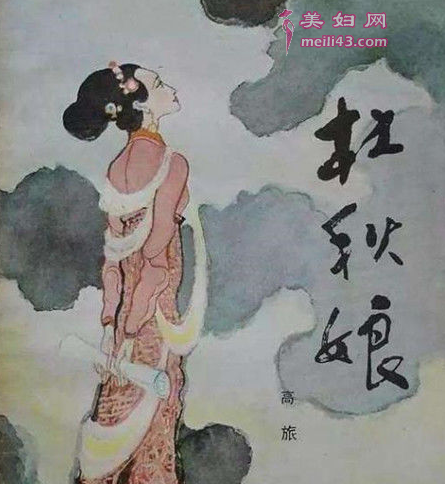 美妇网
meili43.com
杜秋娘
高旅